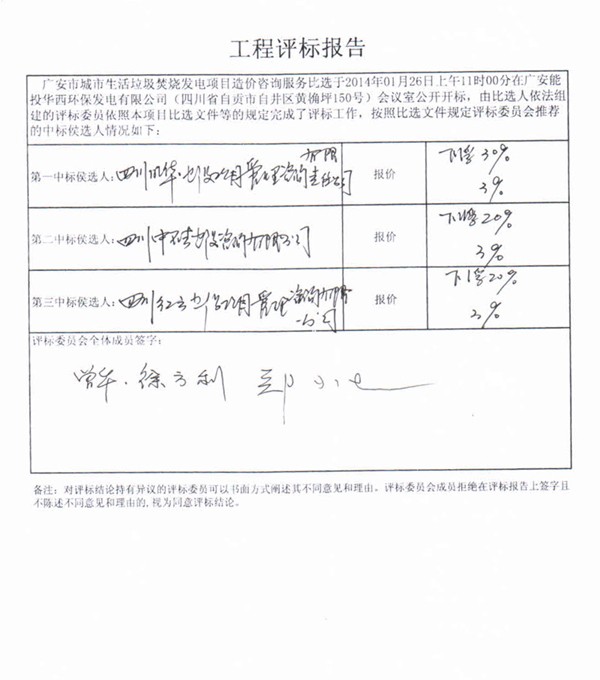 工程评标报告
广安市城市生活垃圾焚烧发电项目造价咨询服务比选于2014年01月26日上午11时00分在广安能
投华西环保发电有限公司（四川省自贡市自井区黄桷坪150号）会议室公开开标，由比选人依法组
建的评标委员依照本项目比选文件等的规定完成了评标工作，按照比选文件规定评标委员会推荐
的中标候选人情况如下：
第一中标候选人：四川 华 建设项目管理咨询有限责任公司
报价
下浮30%
3%
第二中标候选人：四川中 建设咨询有限公司
报价
下浮20%
3%
第三中标候选人：四川 项目管理咨询有限公司
报价
下浮20%
3%
评标委员会全体成员签字：
徐 利
备注：对评标结论持有异议的评标委员可以书面方式阐述其不同意见和理由。评标委员会成员拒绝在评标报告上签字且
不陈述不同意见和理由的,视为同意评标结论。